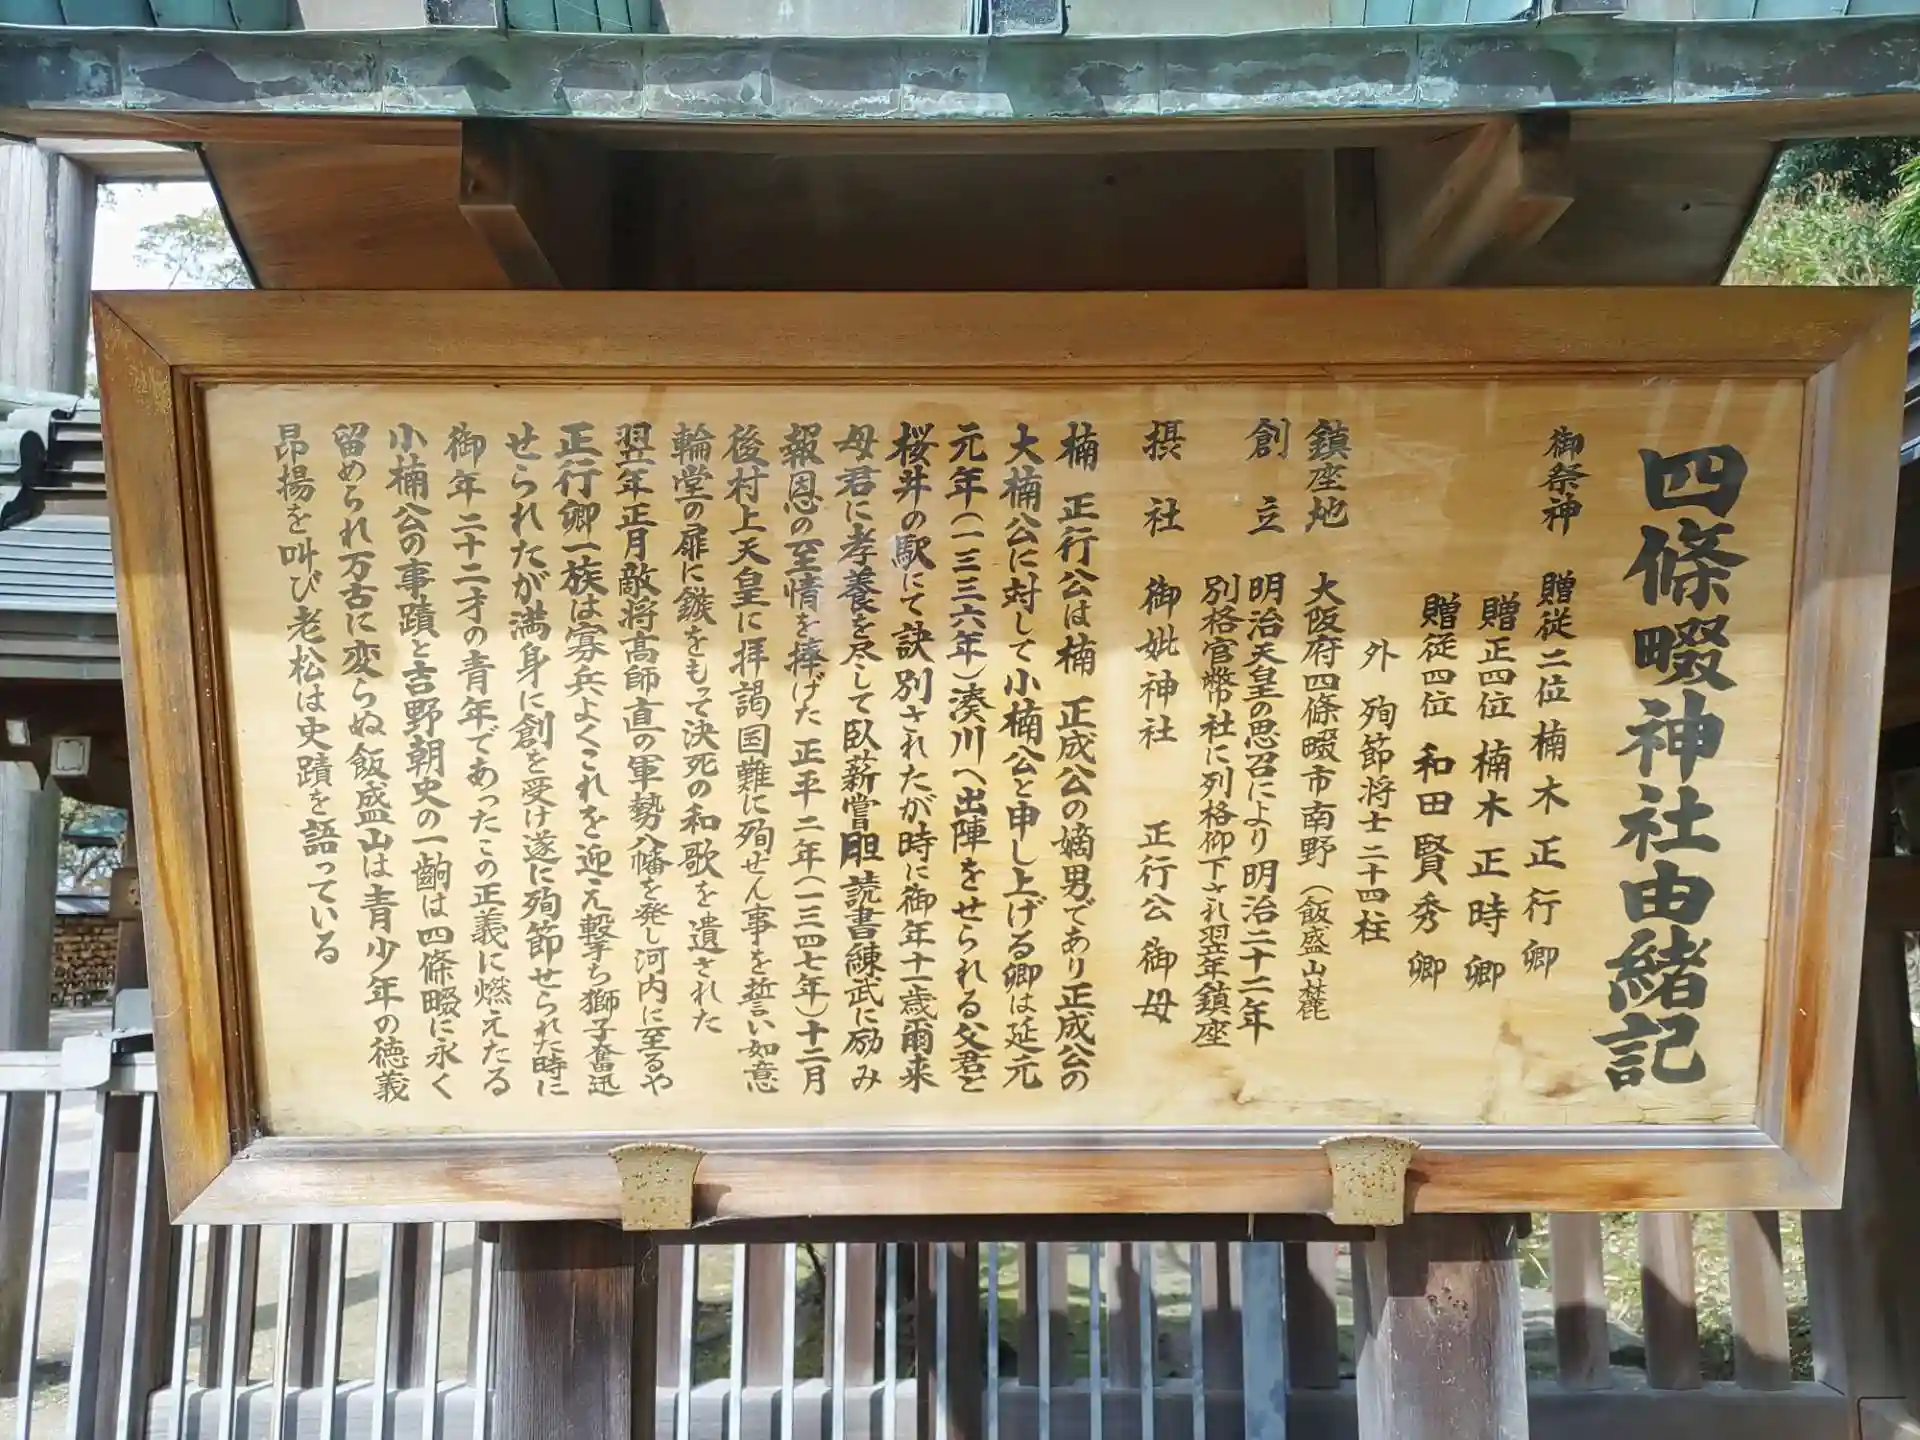 四條畷神社由緒記
御祭神 贈従二位 楠木正行卿
贈正四位 楠木正時卿
贈従四位 和田賢秀卿
外 殉節将士二十四柱
鎮座地 大阪府四條畷市南野(飯盛山麓)
創立 明治天皇の思召により明治二十二年
別格官幣社に列格仰下され翌年鎮座
摂社 御妣神社 正行公御母
楠 正行公は楠 正成公の嫡男であり正成公の
大楠公に対して小楠公と申し上げる卿は延元
元年(一三三六年)湊川へ出陣をせられる父君と
桜井の駅にて訣別されたが時に御年十一歳爾来
母君に孝養を尽して臥薪嘗胆読書練武に励み
報恩の至情を捧げた 正平二年(一三四七年)十二月
後村上天皇に拝謁国難に殉せん事を誓い如意
輪堂の扉に鏃をもって決死の和歌を遺された
翌年正月敵将高師直の軍勢八幡を発し河内に至るや
正行卿一族は寡兵よくこれを迎え撃ち獅子奮迅
せられたが満身に創を受け遂に殉節せられた時に
御年二十二才の青年であったこの正義に燃えたる
小楠公の事蹟と吉野朝史の一齣は四條畷に永く
留められ万古に変らぬ飯盛山は青少年の徳義
昂揚を叫び老松は史蹟を語っている